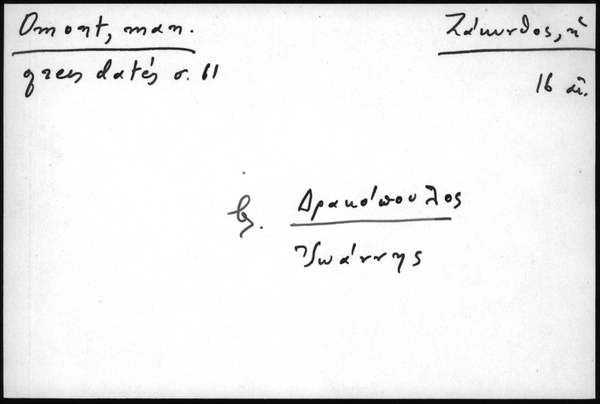 Omont, man.
grecs datés σ. 61
Ζάκυνθος, ἡ
16 αἰ.
βλ. Δρακόπουλος
Ἰωάννης